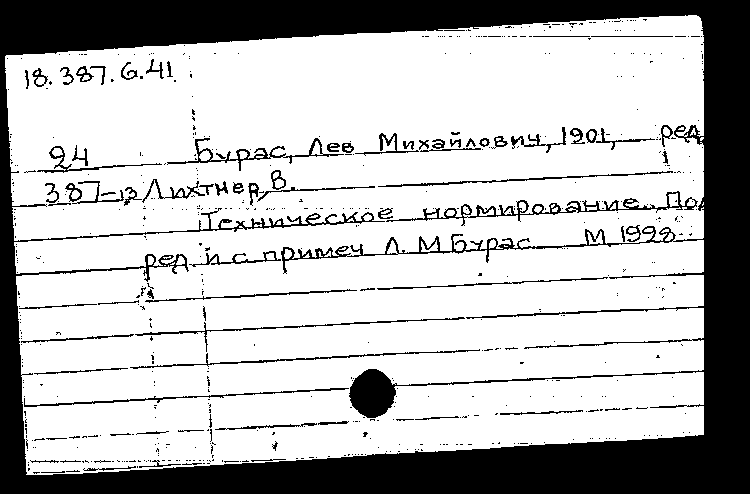 18.387.G.41
24 Бурас, Лев Михайлович, 1901, ред.
387-13 Лихтнер, В.
Техническое нормирование. Под
ред. и с примеч Л. М Бурас М. 1928